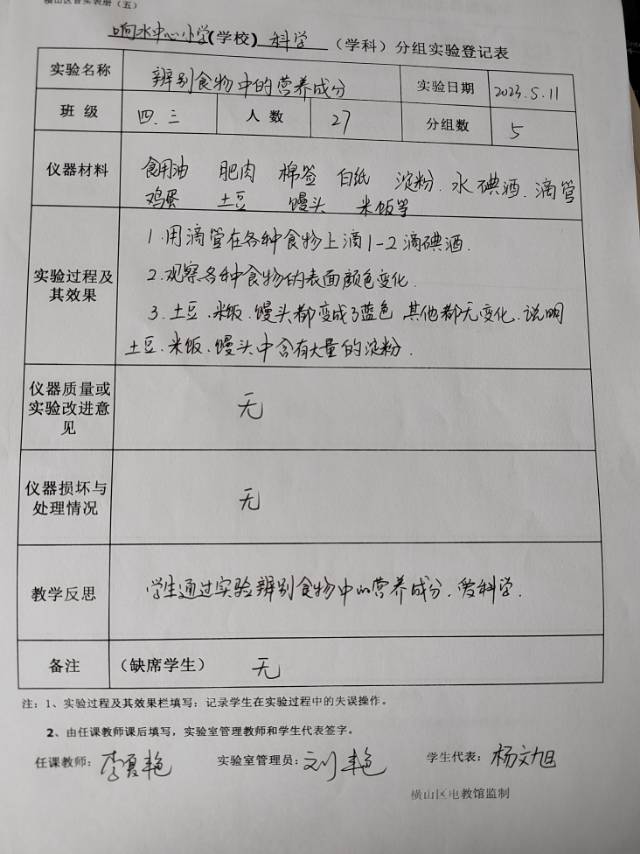 横山区音实表册（五）
响水中心小学(学校) 科学 （学科）分组实验登记表
实验名称 辨别食物中的营养成分 实验日期 2023.5.11
班 级 四.三 人 数 27 分组数 5
仪器材料 食用油 肥肉 棉签 白纸 淀粉.水 碘酒.滴管
鸡蛋 土豆 馒头 米饭等
实验过程及其效果
1.用滴管在各种食物上滴1-2滴碘酒.
2.观察各种食物的表面颜色变化.
3.土豆.米饭.馒头都变成了蓝色 其他都无变化.说明
土豆.米饭.馒头中含有大量的淀粉.
仪器质量或实验改进意见 无
仪器损坏与处理情况 无
教学反思 学生通过实验辨别食物中的营养成分.爱科学.
备注 （缺席学生） 无
注：1、实验过程及其效果栏填写：记录学生在实验过程中的失误操作。
2、由任课教师课后填写，实验室管理教师和学生代表签字。
任课教师：李夏艳 实验室管理员：刘艳 学生代表：杨文旭
横山区电教馆监制